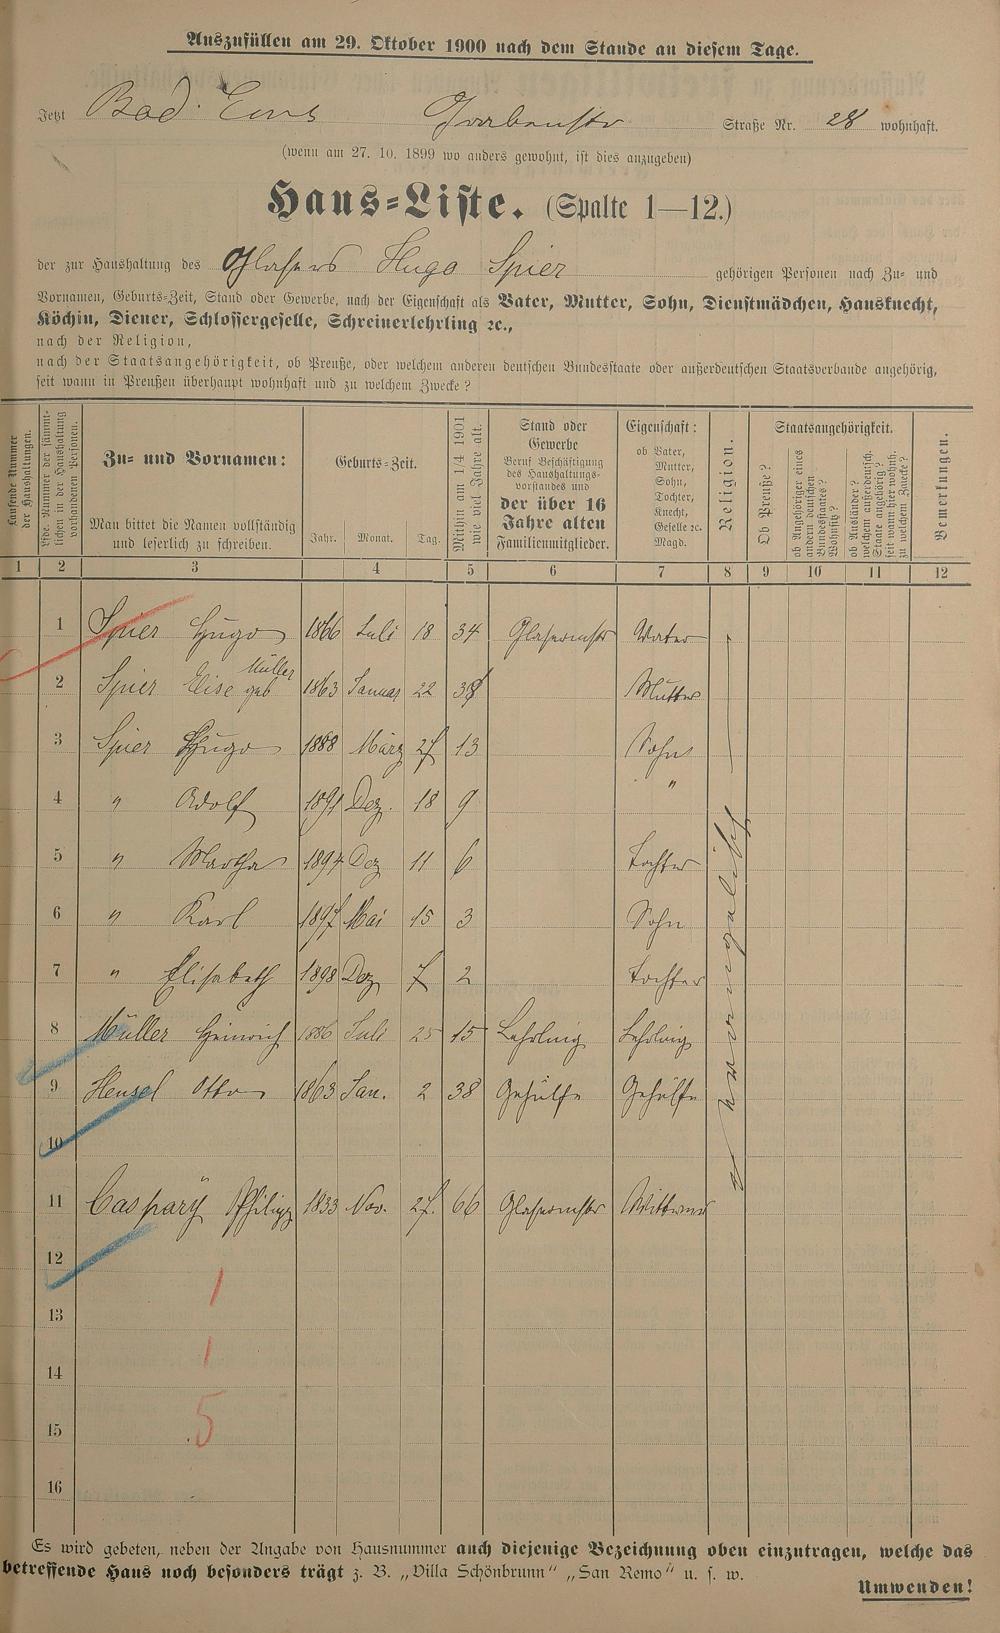 Auszufüllen am 29. Oktober 1900 nach dem Stande an diesem Tage.
Jetzt Bad Ems Grabenstr Straße Nr. 28 wohnhaft.
(wenn am 27. 10. 1899 wo anders gewohnt, ist dies anzugeben)
Haus-Liste. (Spalte 1—12.)
der zur Haushaltung des Glasers Hugo Spier gehörigen Personen nach Zu- und
Vornamen, Geburts-Zeit, Stand oder Gewerbe, nach der Eigenschaft als Vater, Mutter, Sohn, Dienstmädchen, Hausknecht,
Köchin, Diener, Schlossergeselle, Schreinerlehrling ꝛc.,
nach der Religion,
nach der Staatsangehörigkeit, ob Preuße, oder welchem anderen deutschen Bundesstaate oder außerdeutschen Staatsverbande angehörig,
seit wann in Preußen überhaupt wohnhaft und zu welchem Zwecke?
Laufende Nummer
der Haushaltungen.
Lfde. Nummer der sämmt-
lichen in der Haushaltung
vorhandenen Personen.
Zu- und Vornamen:
Man bittet die Namen vollständig
und leserlich zu schreiben.
Geburts-Zeit.
Jahr. Monat. Tag.
Mithin am 1/4 1901
wie viel Jahre alt.
Stand oder
Gewerbe
Beruf Beschäftigung
des Haushaltungs-
vorstandes und
der über 16
Jahre alten
Familienmitglieder.
Eigenschaft:
ob Vater,
Mutter,
Sohn,
Tochter,
Knecht,
Geselle ꝛc.
Magd.
Religion.
Staatsangehörigkeit.
Ob Preuße?
ob Angehöriger eines
andern deutschen
Bundesstaates?
Wohnsitz?
ob Ausländer?
welchem außerdeutsch.
Staate angehörig?
seit wann hier wohnh.
zu welchem Zwecke?
Bemerkungen.
1 2 3 4 5 6 7 8 9 10 11 12
1 Spier Hugo 1866 Juli 18 34 Glasermstr Vater
Müller
2 Spier Elise geb 1863 Januar 22 38 Mutter
3 Spier Hugo 1888 März 27 13 Sohn
4 " Adolf 1891 Dez. 18 9 "
5 " Martha 1894 Dez 11 6 Tochter
6 " Karl 1897 Mai 15 3 Sohn
7 " Elisabeth 1898 Dez 7 2 Tochter
8 Müller Heinrich 1886 Juli 25 15 Lehrling Lehrling
9 Hensel Otto 1863 Jan. 2 38 Gehülfe Gehülfe
evangelisch
10
11 Caspary Philipp 1833 Nov. 27. 66 Glasermstr Wittwer
12
1
13
1
14
5
15
16
Es wird gebeten, neben der Angabe von Hausnummer auch diejenige Bezeichnung oben einzutragen, welche das
betreffende Haus noch besonders trägt z. B. „Villa Schönbrunn" „San Remo" u. s. w.
Umwenden!